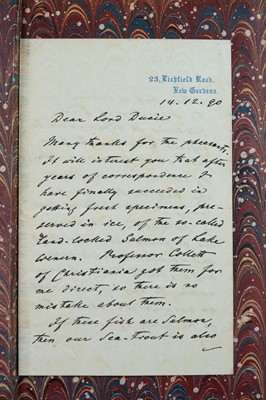 23, Lichfield Road,
Kew Gardens.
14.12.90
Dear Lord Ducie
Many thanks for the pheasants.
It will interest you that after
years of correspondence I
have finally succeeded in
getting fresh specimens, pre-
served in ice, of the so-called
Land-locked Salmon of Lake
Wenern. Professor Collett
of Christiania got them for
me direct, so there is no
mistake about them.
If these fish are Salmon,
then our Sea-trout is also